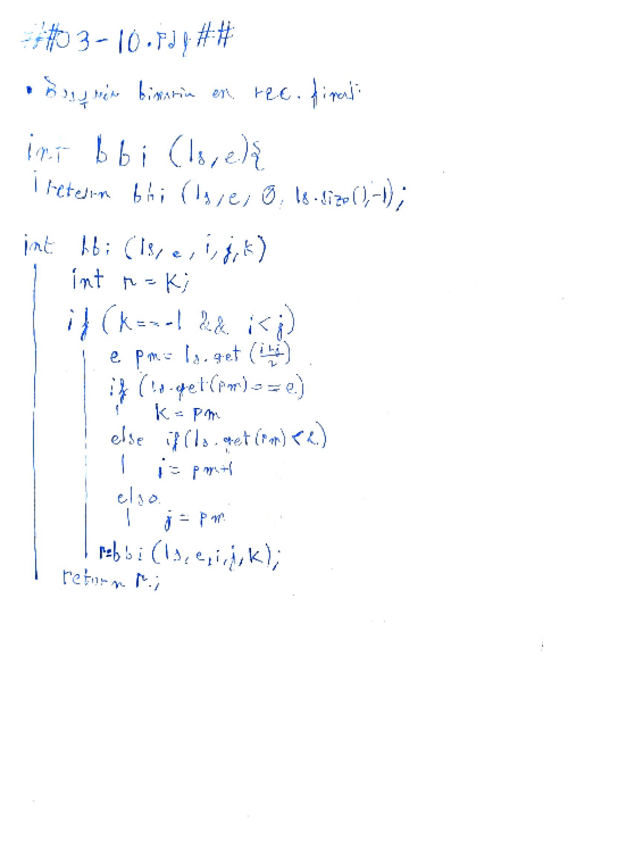 ##03-10.pdf##
• Búsqueda binaria en rec. final:
int bbi (ls,e){
return bbi (ls, e, 0, ls.size(),-1);
int bbi (ls, e, i, j, k)
int r = k;
if (k==-1 && i<j)
e pm= ls.get (i+j/2)
if (ls.get(pm)==e)
k = pm
else if(ls.get(pm)<e)
i = pm+1
else
j = pm
r=bbi (ls,e,i,j,k);
return r;